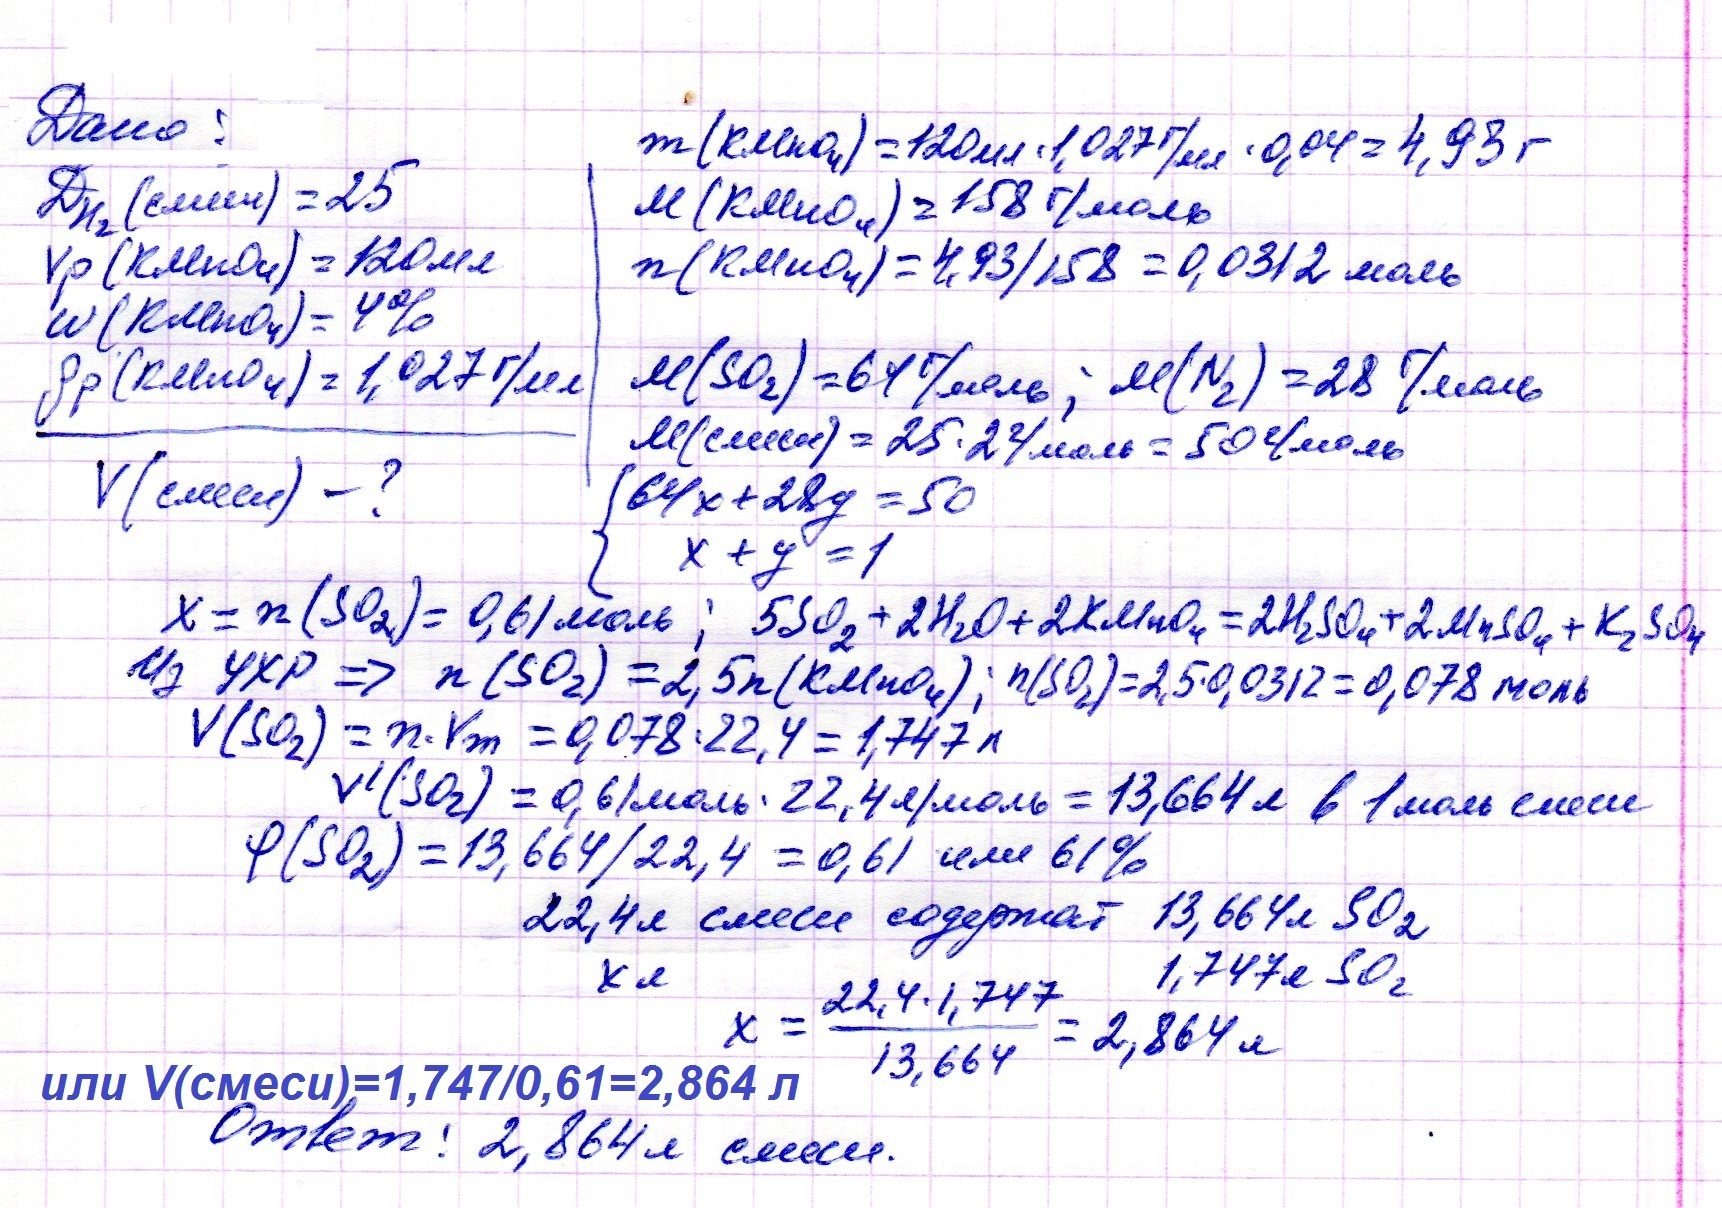 Дано:
D_H₂(смеси) = 25
Vр(KMnO₄) = 120мл
w(KMnO₄) = 4%
ρр(KMnO₄) = 1,027 г/мл
V(смеси) – ?
m(KMnO₄) = 120мл · 1,027 г/мл · 0,04 = 4,93 г
M(KMnO₄) = 158 г/моль
n(KMnO₄) = 4,93/158 = 0,0312 моль
M(SO₂) = 64 г/моль; M(N₂) = 28 г/моль
M(смеси) = 25·2 г/моль = 50 г/моль
{ 64x + 28y = 50
x + y = 1
X = n(SO₂) = 0,61 моль; 5SO₂ + 2H₂O + 2KMnO₄ = 2H₂SO₄ + 2MnSO₄ + K₂SO₄
Из УХР => n(SO₂) = 2,5n(KMnO₄); n(SO₂) = 2,5·0,0312 = 0,078 моль
V(SO₂) = n·Vm = 0,078·22,4 = 1,747 л
V'(SO₂) = 0,61 моль · 22,4 л/моль = 13,664 л в 1 моль смеси
φ(SO₂) = 13,664/22,4 = 0,61 или 61%
22,4 л смеси содержат 13,664 л SO₂
x л 1,747 л SO₂
x = 22,4·1,747 / 13,664 = 2,864 л
или V(смеси)=1,747/0,61=2,864 л
Ответ: 2,864 л смеси.